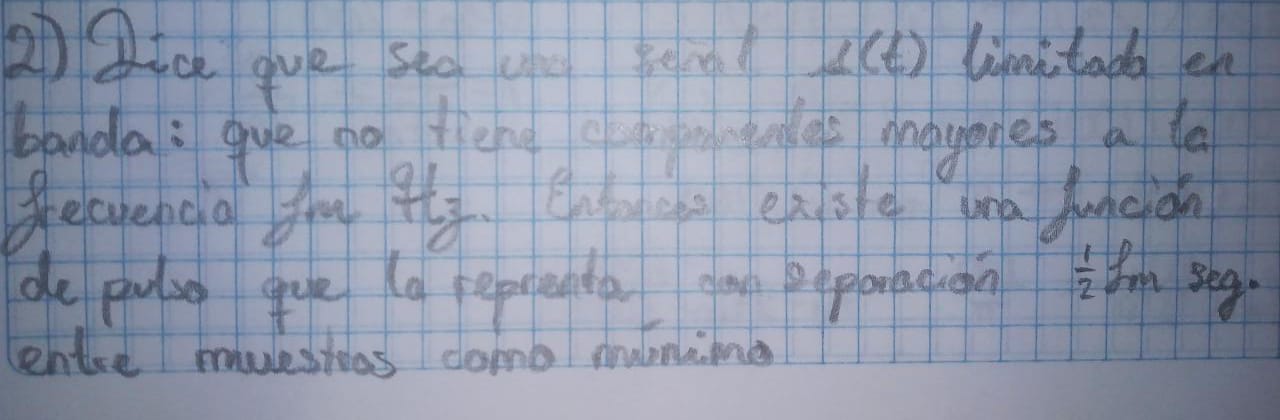 2) Dice que sea una señal s(t) limitada en
banda: que no tiene componentes mayores a la
frecuencia fm Hz. Entonces existe una función
de pulso que la reprenta con separación ½ fm seg.
entre muestras como mínimo